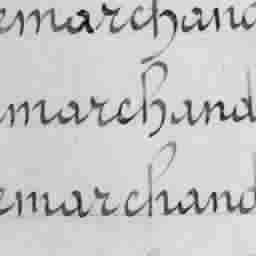 emarchand
emarchand
emarchand